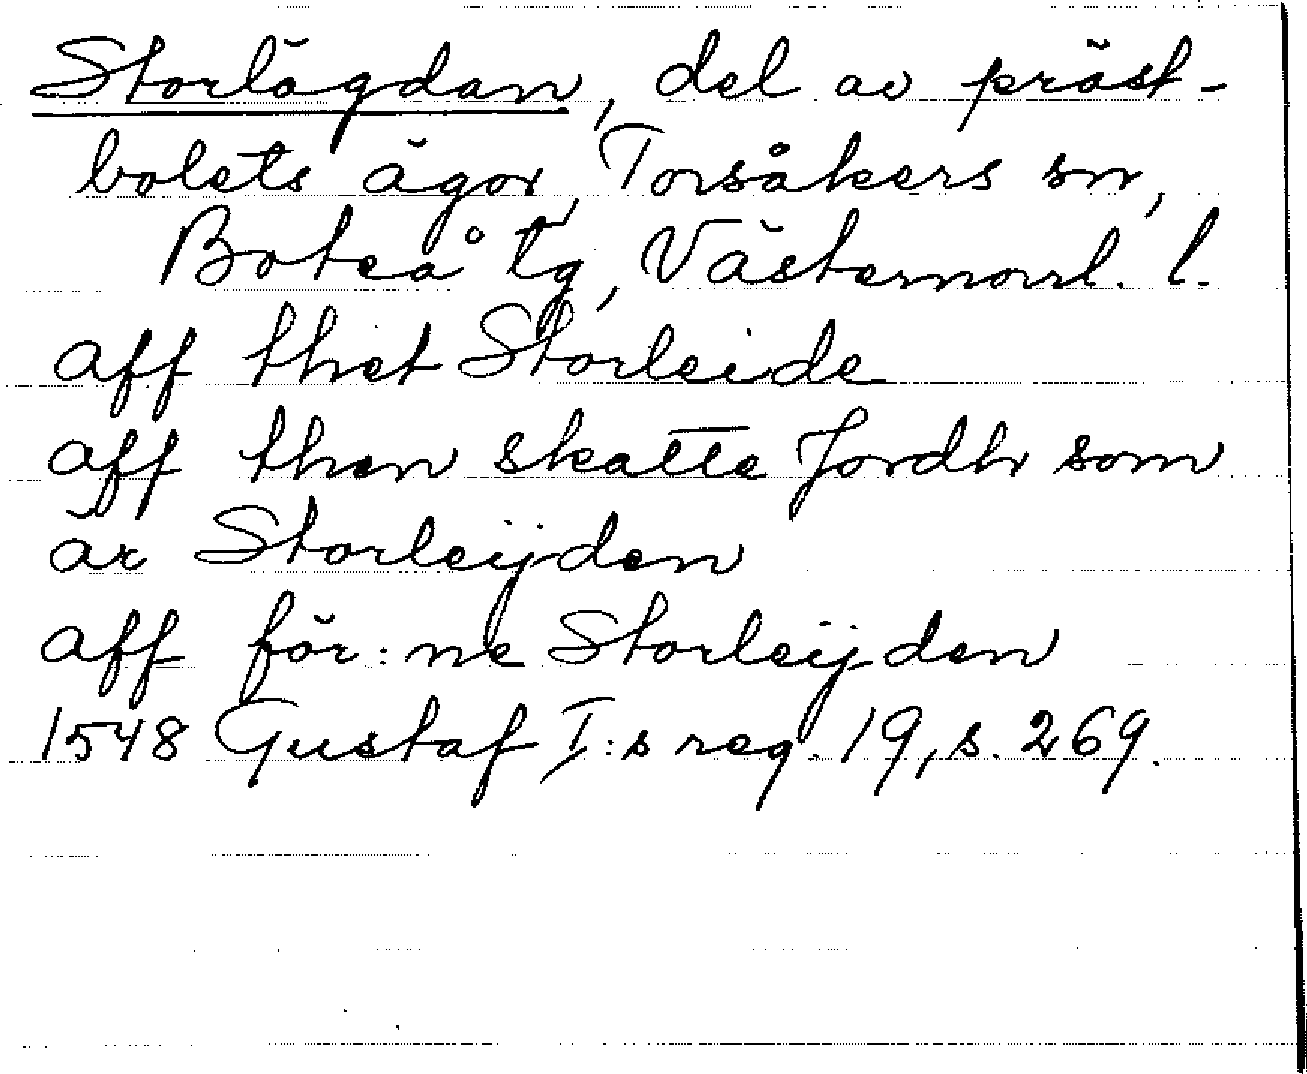 Storlägdan, del av präst-
bolets ägor, Torsåkers sn,
Boteå tg, Västernorrl. l.
aff thet Storleide
aff then skatte Jordh som
är Storleijden
aff för:ne Storleijden
1548 Gustaf I:s reg. 19, s. 269.